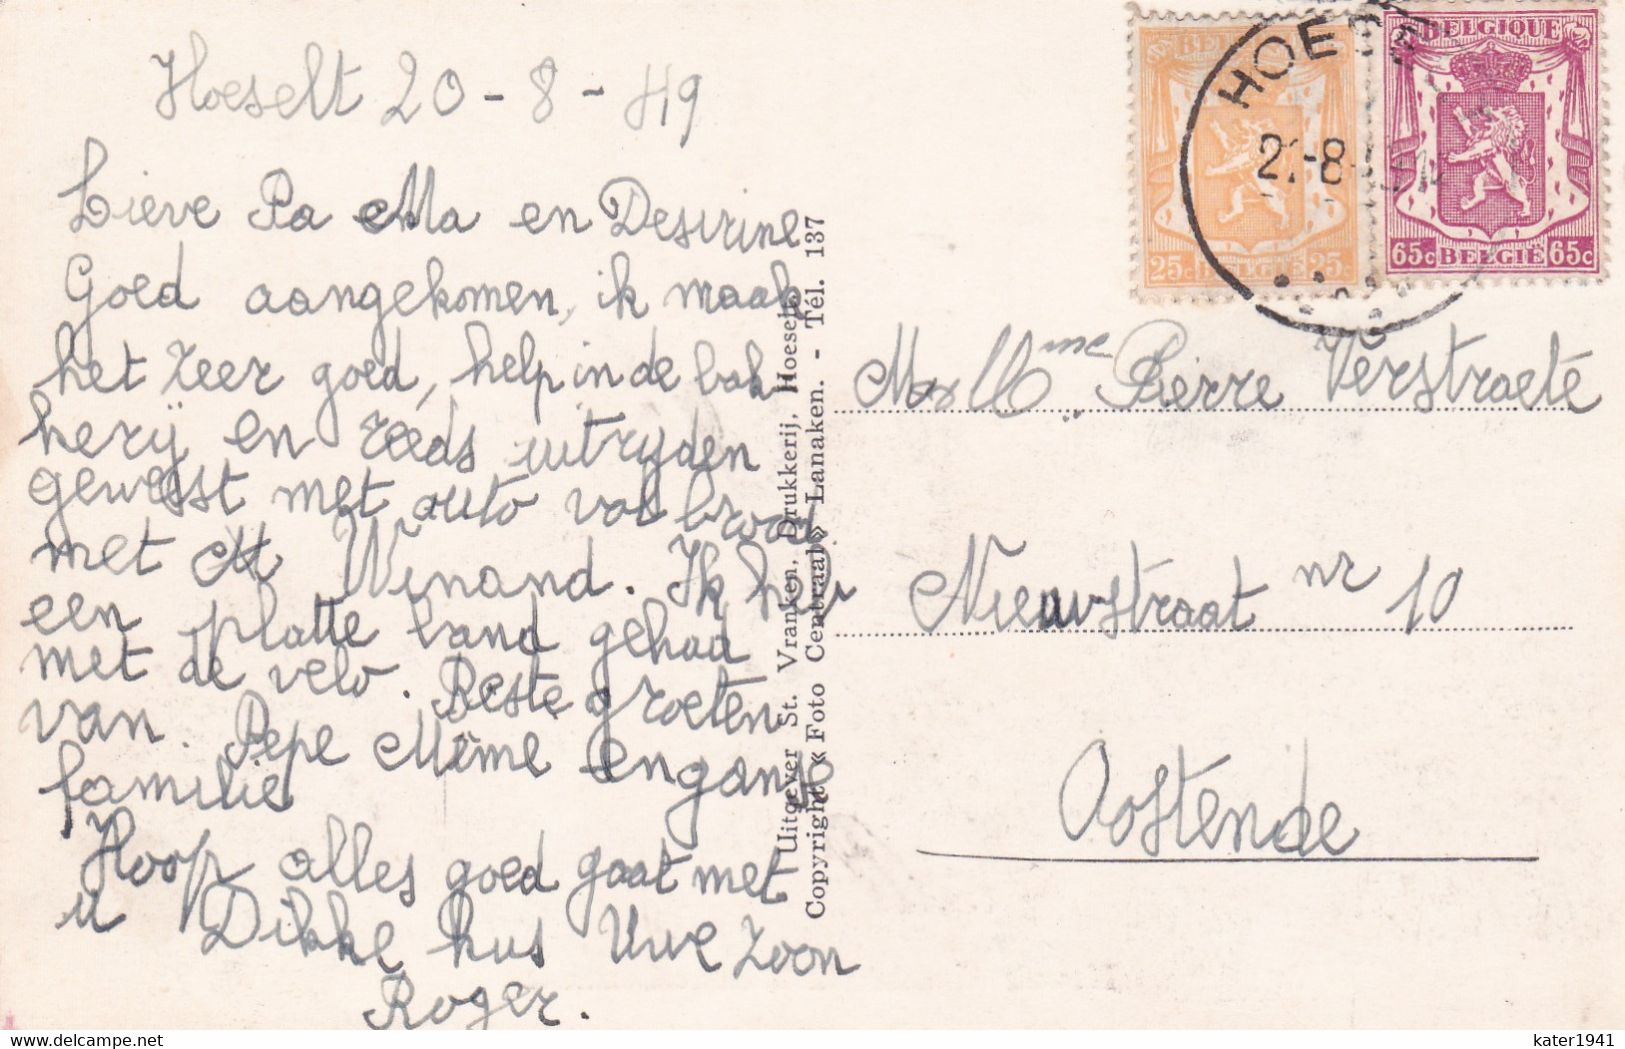 Hoeselt 20-8-49
Lieve Pa Ma en Desirine
Goed aangekomen, ik maak
het zeer goed, help in de bak
kerij en reeds uitrijden
geweest met auto vol brood
met M Winand. Ik heb
een platte band gehad
met de velo. Beste groeten
van. Pepe Mëme en ganse
familie
Hoop alles goed gaat met
u Dikke kus Uwe zoon
Roger.
Uitgever St. Vranken, Drukkerij, Hoeselt.
Copyright « Foto Centraal » Lanaken. - Tél. 137
BELGIQUE
25c BELGIE 25c
BELGIQUE
65c BELGIE 65c
HOESE
-8-
Mr Mme Pierre Verstraete
Nieuwstraat nr 10
Oostende
delcampe.net
kater1941